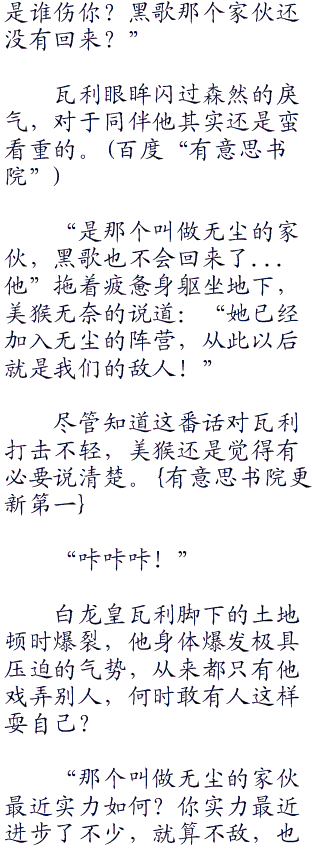 是谁伤你？黑歌那个家伙还
没有回来？”
瓦利眼眸闪过森然的戾
气，对于同伴他其实还是蛮
看重的。(百度“有意思书
院”)
“是那个叫做无尘的家
伙，黑歌也不会回来了...
他”拖着疲惫身躯坐地下，
美猴无奈的说道：“她已经
加入无尘的阵营，从此以后
就是我们的敌人！”
尽管知道这番话对瓦利
打击不轻，美猴还是觉得有
必要说清楚。{有意思书院更
新第一}
“咔咔咔！”
白龙皇瓦利脚下的土地
顿时爆裂，他身体爆发极具
压迫的气势，从来都只有他
戏弄别人，何时敢有人这样
耍自己？
“那个叫做无尘的家伙
最近实力如何？你实力最近
进步了不少，就算不敌，也